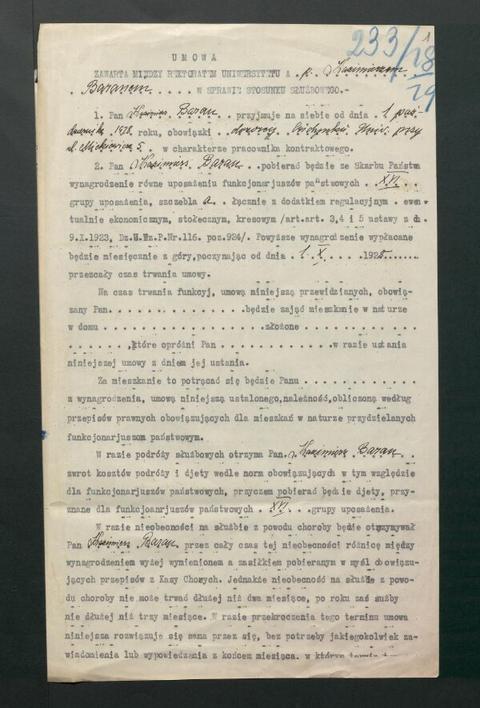 233/28/29
1
UMOWA
ZAWARTA MIĘDZY REKTORATEM UNIWERSYTETU A p. Kazimierzem
Baranem . . . . W SPRAWIE STOSUNKU SŁUŻBOWEGO.-
1. Pan Kazimierz Baran . przyjmuje na siebie od dnia . 1 paź-
dziernika 1928. roku, obowiązki . dozorcy . Uniw. przy
ul. Mickiewicza 5. . w charakterze pracownika kontraktowego.
2. Pan Kazimierz Baran . . pobierać będzie ze Skarbu Państwa
wynagrodzenie równe uposażeniu funkcjonarjuszów państwowych . XVI . .
grupy uposażenia, szczebla a . łącznie z dodatkiem regulacyjnym . ewen-
tualnie ekonomicznym, stołecznym, kresowym /art.art. 3,4 i 5 ustawy z dn.
9.X.1923, Dz.U.Rz.P.Nr.116. poz.924/. Powyższe wynagrodzenie wypłacane
będzie miesięcznie z góry, poczynając od dnia . 1 . X . . . . 1928 . . . . .
przezcały czas trwania umowy.
Na czas trwania funkcyj, umową niniejszą przewidzianych, obowią-
zany Pan. . . . . . . . . . . . . . . będzie zająć mieszkanie w naturze
w domu . . . . . . . . . . . . . . . . .złożone . . . . . . . . . . . .
. . . . . . . ,które opróżni Pan . . . . . . . . . . .w razie ustania
niniejszej umowy z dniem jej ustania.
Za mieszkanie to potrącać się będzie Panu . . . . . . . . . . . .
z wynagrodzenia, umową niniejszą ustalonego, należność, obliczoną według
przepisów prawnych obowiązujących dla mieszkań w naturze przydzielanych
funkcjonarjuszom państwowym.
W razie podróży służbowych otrzyma Pan. Kazimierz Baran . .
zwrot kosztów podróży i djety wedle norm obowiązujących w tym względzie
dla funkcjonarjuszów państwowych, przyczem pobierać będzie djety, przy-
znane dla funkcjonarjuszów państwowych . XVI . . . grupy uposażenia.
W razie nieobecności na służbie z powodu choroby będzie otrzymywał
Pan Kazimierz Baran . przez cały czas tej nieobecności różnicę między
wynagrodzeniem wyżej wymienionem a zasiłkiem pobieranym w myśl obowiązu-
jących przepisów z Kasy Chorych. Jednakże nieobecność na służbie z powo-
du choroby nie może trwać dłużej niż dwa miesiące, po roku zaś służby
nie dłużej niż trzy miesiące. W razie przekroczenia tego terminu umowa
niniejsza rozwiązuje się sama przez się, bez potrzeby jakiegokolwiek za-
wiadomienia lub wypowiedzenia z końcem miesiąca, w którym termin